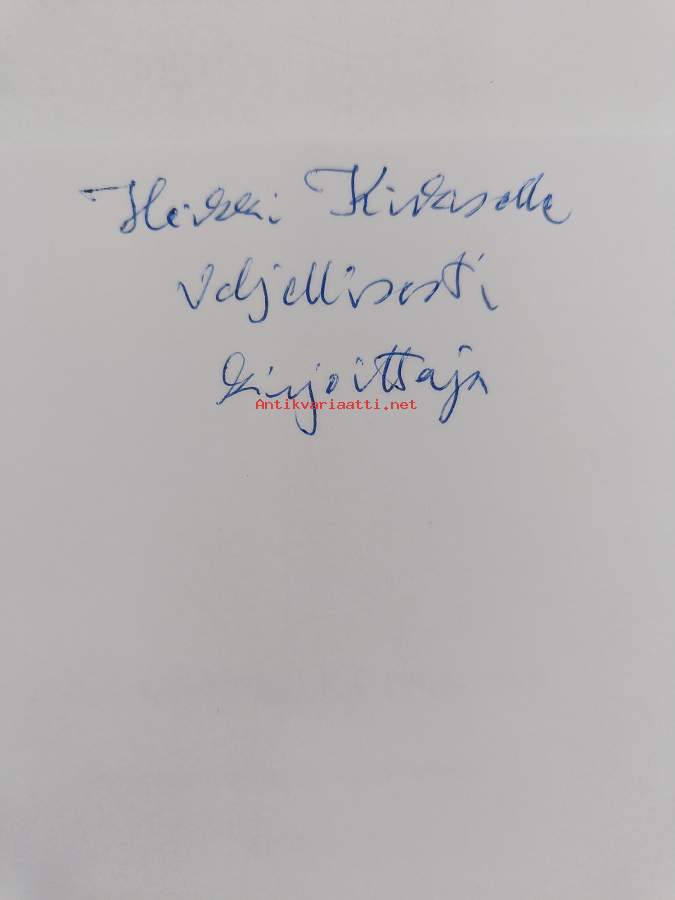 Heikki Kirkiselle
veljellisesti
kirjoittaja
Antikvariaatti.net